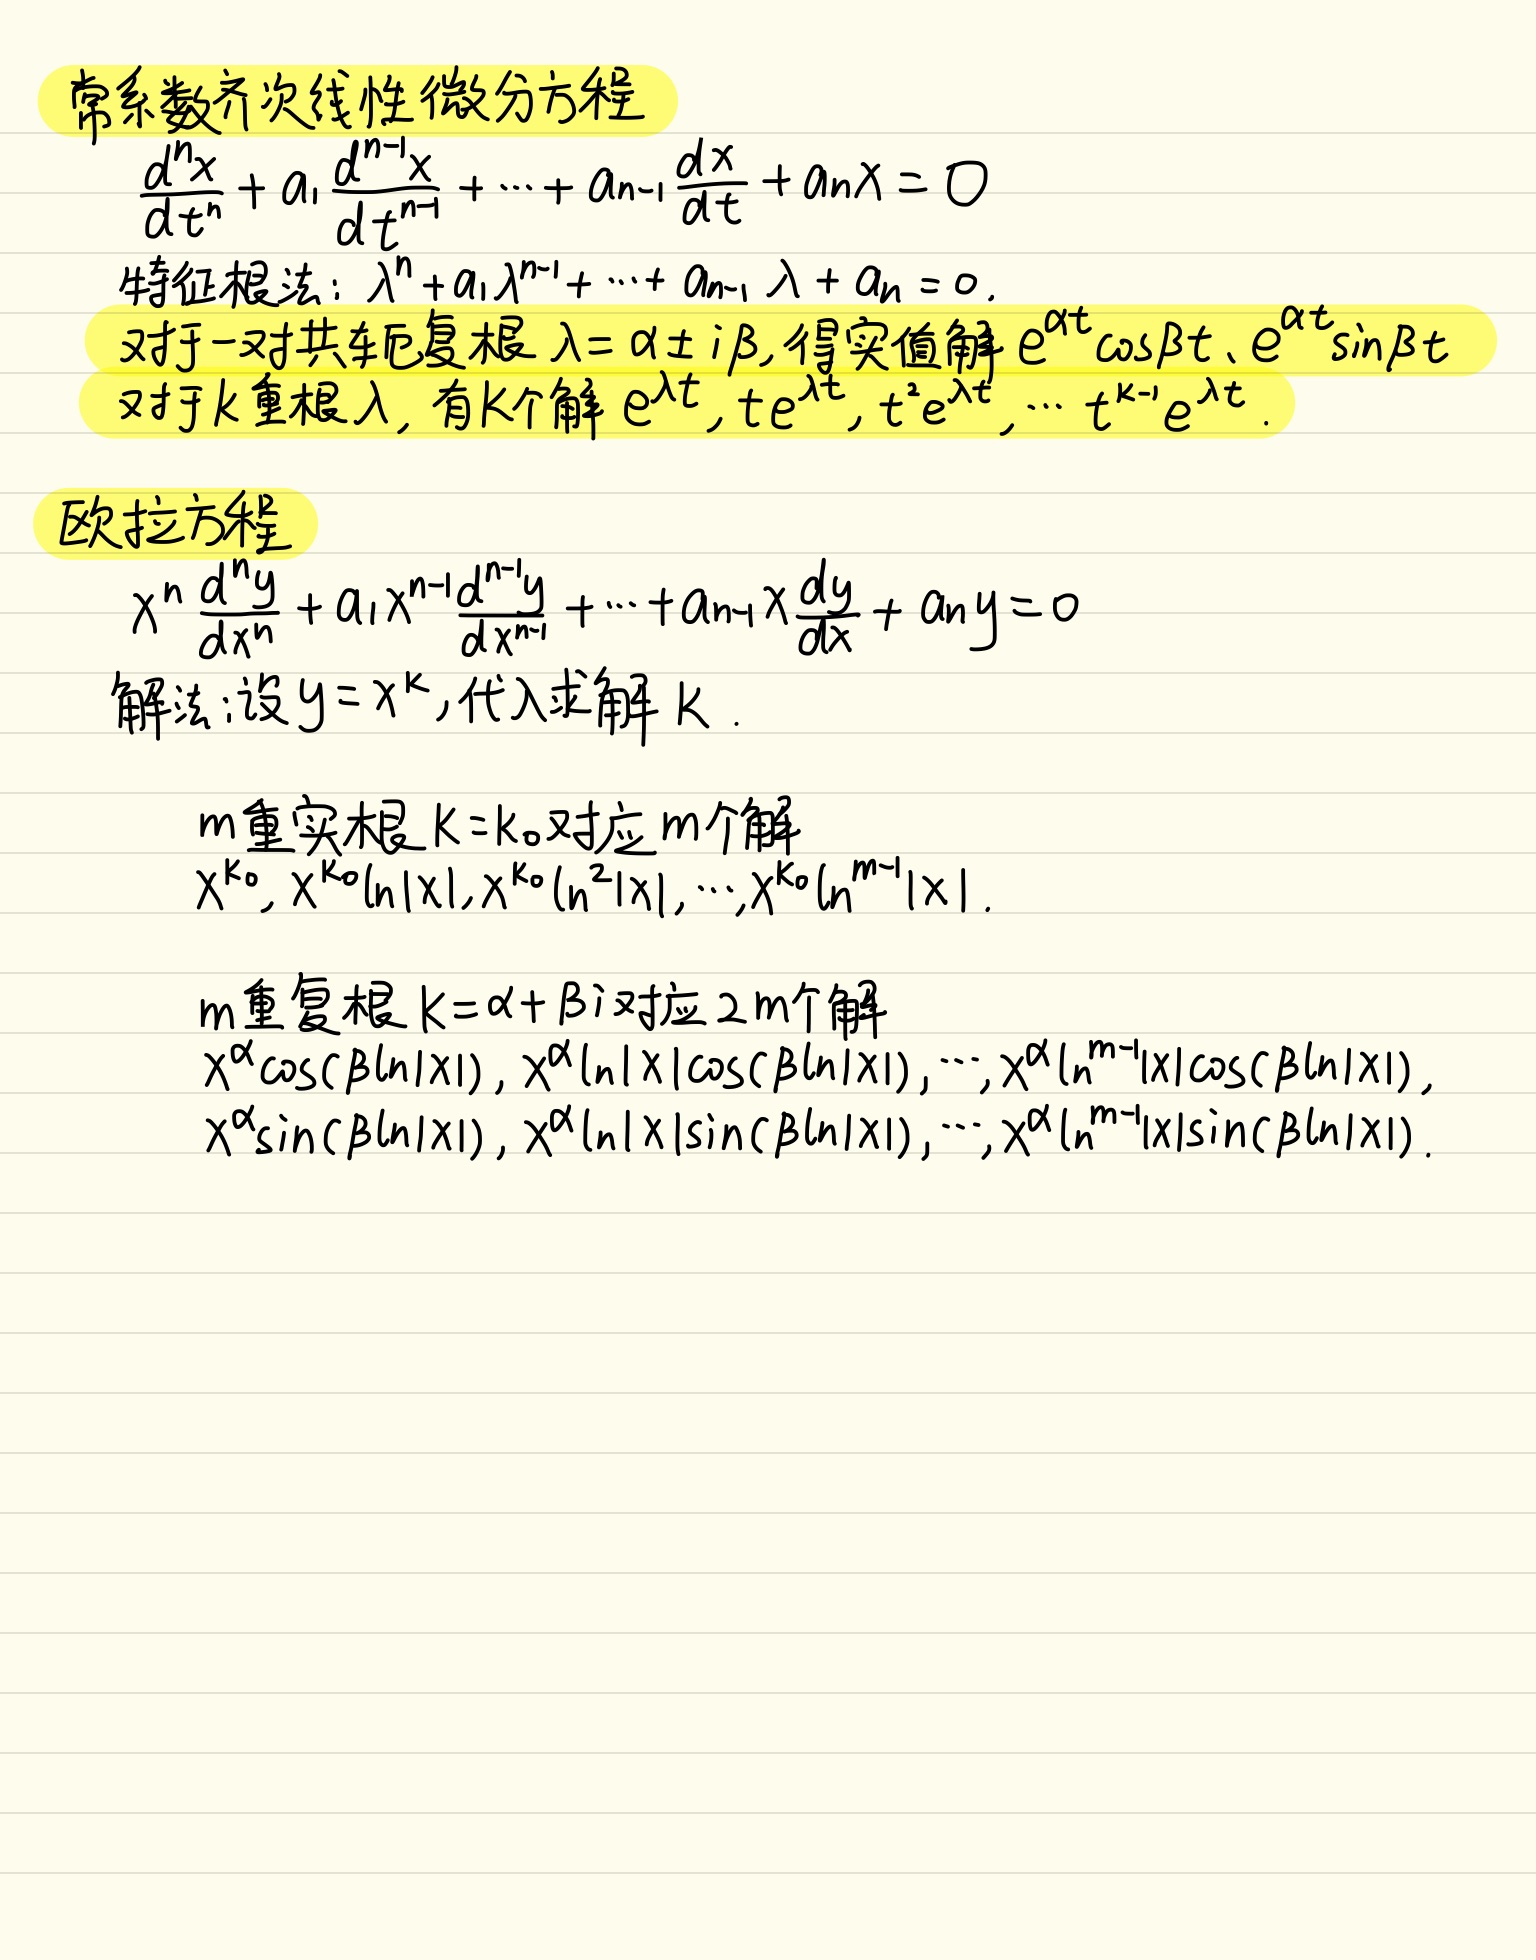 常系数齐次线性微分方程
$\frac{d^n x}{dt^n} + a_1 \frac{d^{n-1} x}{dt^{n-1}} + \cdots + a_{n-1} \frac{dx}{dt} + a_n x = 0$
特征根法: $\lambda^n + a_1 \lambda^{n-1} + \cdots + a_{n-1} \lambda + a_n = 0.$
对于一对共轭复根 $\lambda = \alpha \pm i\beta$, 得实值解 $e^{\alpha t} \cos\beta t$、$e^{\alpha t} \sin\beta t$
对于k重根 $\lambda$, 有K个解 $e^{\lambda t}, te^{\lambda t}, t^2 e^{\lambda t}, \cdots t^{k-1} e^{\lambda t}.$
欧拉方程
$x^n \frac{d^n y}{dx^n} + a_1 x^{n-1} \frac{d^{n-1} y}{dx^{n-1}} + \cdots + a_{n-1} x \frac{dy}{dx} + a_n y = 0$
解法:设 $y = x^K$, 代入求解 K.
m重实根 $K = k_0$ 对应m个解
$x^{k_0}, x^{k_0} \ln|x|, x^{k_0} \ln^2|x|, \cdots, x^{k_0} \ln^{m-1}|x|.$
m重复根 $K = \alpha + \beta i$ 对应2m个解
$x^\alpha \cos(\beta \ln|x|), x^\alpha \ln|x| \cos(\beta \ln|x|), \cdots, x^\alpha \ln^{m-1}|x| \cos(\beta \ln|x|),$
$x^\alpha \sin(\beta \ln|x|), x^\alpha \ln|x| \sin(\beta \ln|x|), \cdots, x^\alpha \ln^{m-1}|x| \sin(\beta \ln|x|).$